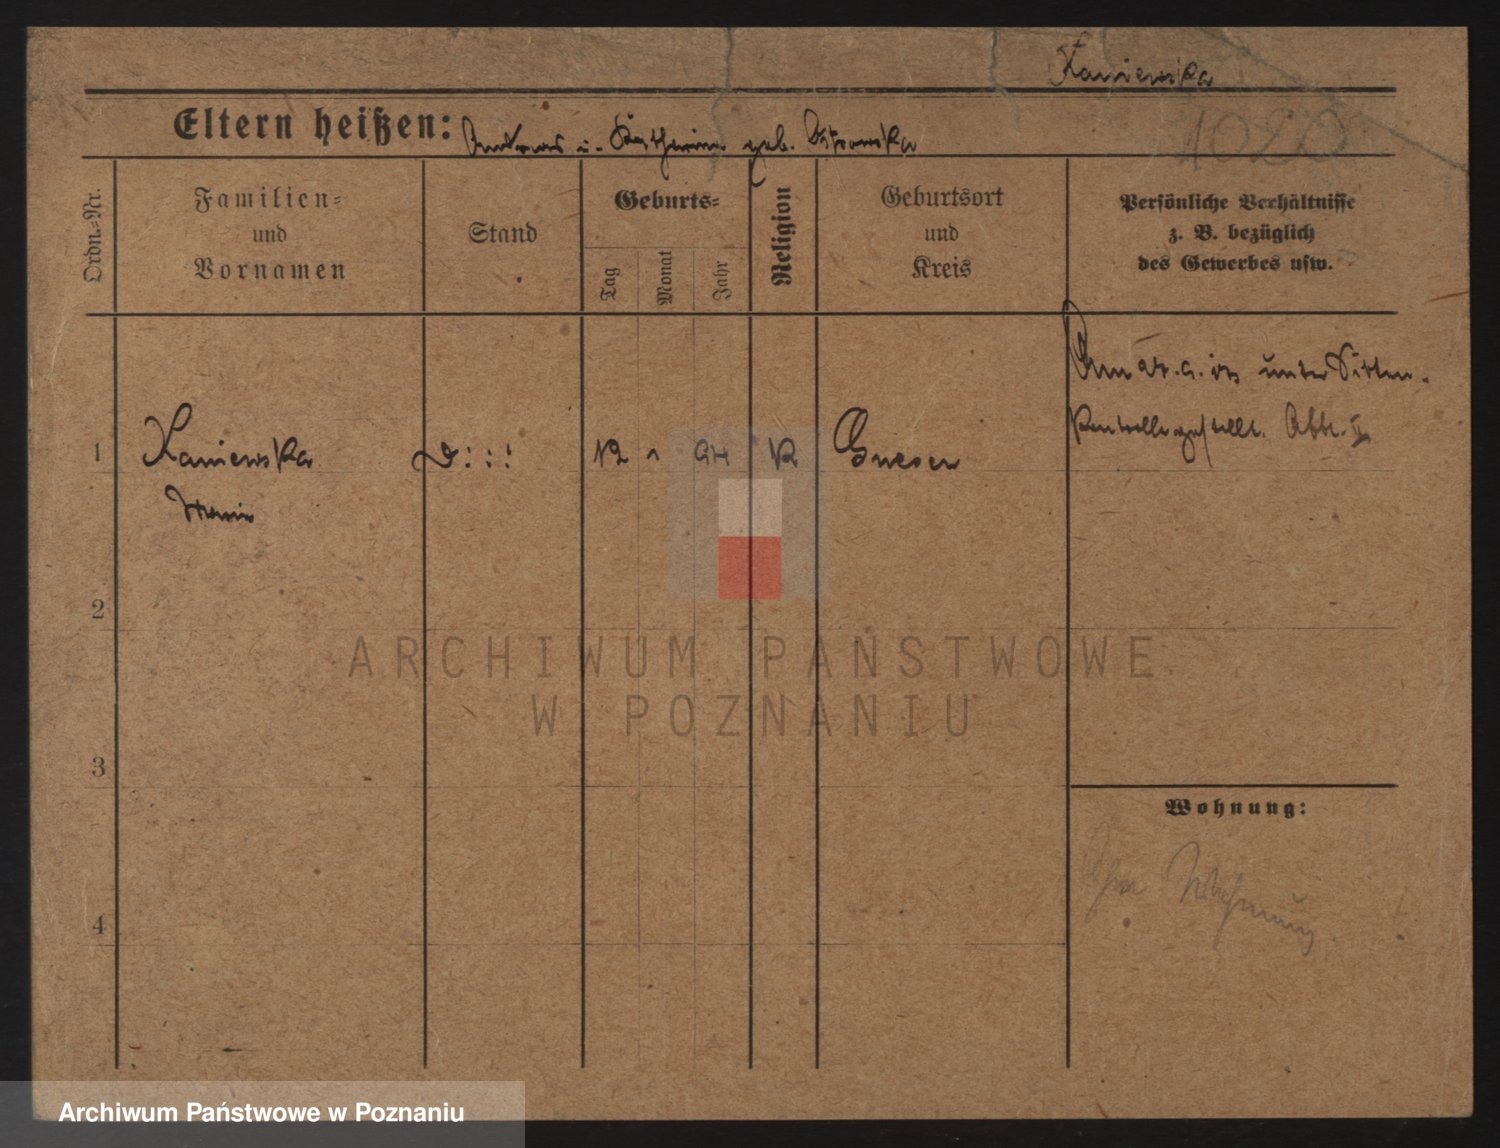 Kaniewska
Eltern heißen: Andreas u. Katharina geb.
1020
Ordn.=Nr.
Familien=
und
Vornamen
Stand
Geburts=
Tag
Monat
Jahr
Religion
Geburtsort
und
Kreis
Persönliche Verhältnisse
z. B. bezüglich
des Gewerbes usw.
unter Sitten-
Kontrolle gestellt. Abt. II
1 Kaniewska 12 1 94 K Gnesen
2
3
4
Wohnung:
Ohne Wohnung
ARCHIWUM PAŃSTWOWE
W POZNANIU
Archiwum Państwowe w Poznaniu